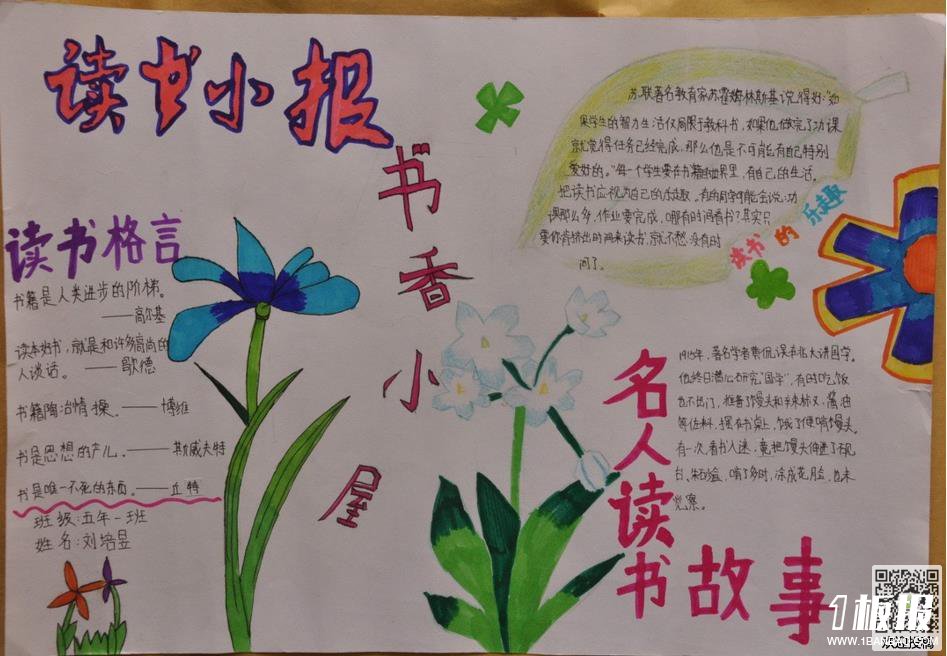 读书小报
书香小屋
读书格言
书籍是人类进步的阶梯。
——高尔基
读本好书,就是和许多高尚的
人谈话。——歌德
书籍陶冶情操。——博维
书是思想的产儿。——斯威夫特
书是唯一不死的东西。——丘特
班级:五年一班
姓名:刘培昱
苏联著名教育家苏霍姆林斯基说得好:"如
果学生的智力生活仅局限于教科书,如果他做完了功课
就觉得任务已经完成,那么他是不可能有自己特别
爱好的。"每一个学生要在书籍的世界里,有自己的生活。
把读书应视为自己的乐趣。有的同学可能会说:功
课那么多,作业要完成,哪有时间看书?其实只
要你肯挤出时间来读书,就不愁没有时
间了。
读书的乐趣
名人读书故事
1915年,著名学者黄侃
在北大讲国学。
他终日潜心研究"国学",有时吃饭
也不出门,准备了馒头和辣椒、酱油
等佐料,摆在书桌上,饿了便啃馒头。
有一次,看书入迷,竟把馒头伸进了砚
台、朱砂盒,啃了多时,涂成花脸,也未
觉察。
1板报
WWW.1BANBAO.COM
欢迎投稿